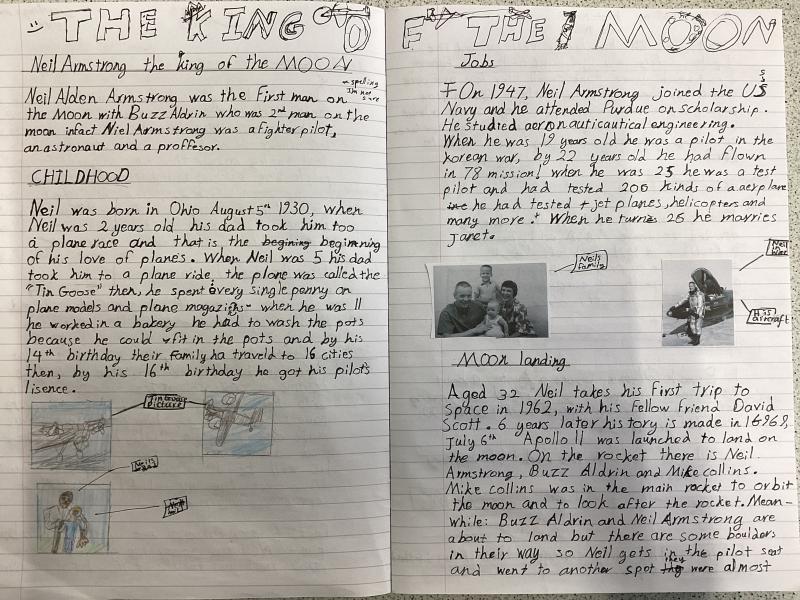 THE KING O
Neil Armstrong the king of the MOON
spelling
I'm not sure
Neil Alden Armstrong was the First man on
the Moon with Buzz Aldrin who was 2nd man on the
moon infact Niel Armstrong was a fighter pilot,
an astronaut and a proffesor.
CHILDHOOD
Neil was born in Ohio August 5th 1930, when
Neil was 2 years old his dad took him too
a plane race and that is, the begining beginning
of his love of planes. When Neil was 5 his dad
took him to a plane ride, the plane was called the
"Tin Goose" then, he spent every single penny on
plane models and plane magazins when he was 11
he worked in a bakery he had to wash the pots
because he could fit in the pots and by his
14th birthday their family ha traveld to 16 cities
then, by his 16th birthday he got his pilot's
lisence.
Tin Goose
picture
Neil's
F THE MOON
Jobs
On 1947, Neil Armstrong joined the US
Navy and he attended Purdue on scholarship.
He studied aeronauticautical engineering.
When he was 19 years old he was a pilot in the
korean war, by 22 years old he had flown
in 78 mission! when he was 25 he was a test
pilot and had tested 200 kinds of a aerplane
he had tested jet planes, helicopters and
many more! When he turns 26 he marries
Janet.
Neils
family
Neil
His
aircraft
Moon landing
Aged 32 Neil takes his first trip to
Space in 1962, with his Fellow Friend David
Scott. 6 years later history is made in 1969,
July 6th Apollo 11 was launched to land on
the moon. On the rocket there is Neil
Armstrong, Buzz Aldrin and Mike collins.
Mike collins was in the main rocket to orbit
the moon and to look after the rocket. Mean-
while: Buzz Aldrin and Neil Armstrong are
about to land but there are some boulders
in their way so Neil gets in the pilot seat
and went to another spot they were almost